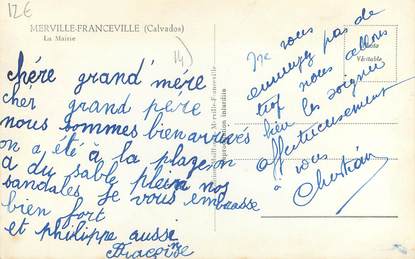 12€
MERVILLE-FRANCEVILLE (Calvados)
La Mairie
14)
chère grand'mère
cher grand père
nous sommes bien arrivés
on a été à la plage on
a du sable plein nos
sandales je vous embrasse
bien fort
et philippe aussi
Françoise
Merville-Franceville
interdite
Photo
Véritable
Ne vous
ennuyez pas de
trop nous allons
bien les soigner
affectueusement
à vous
Christian